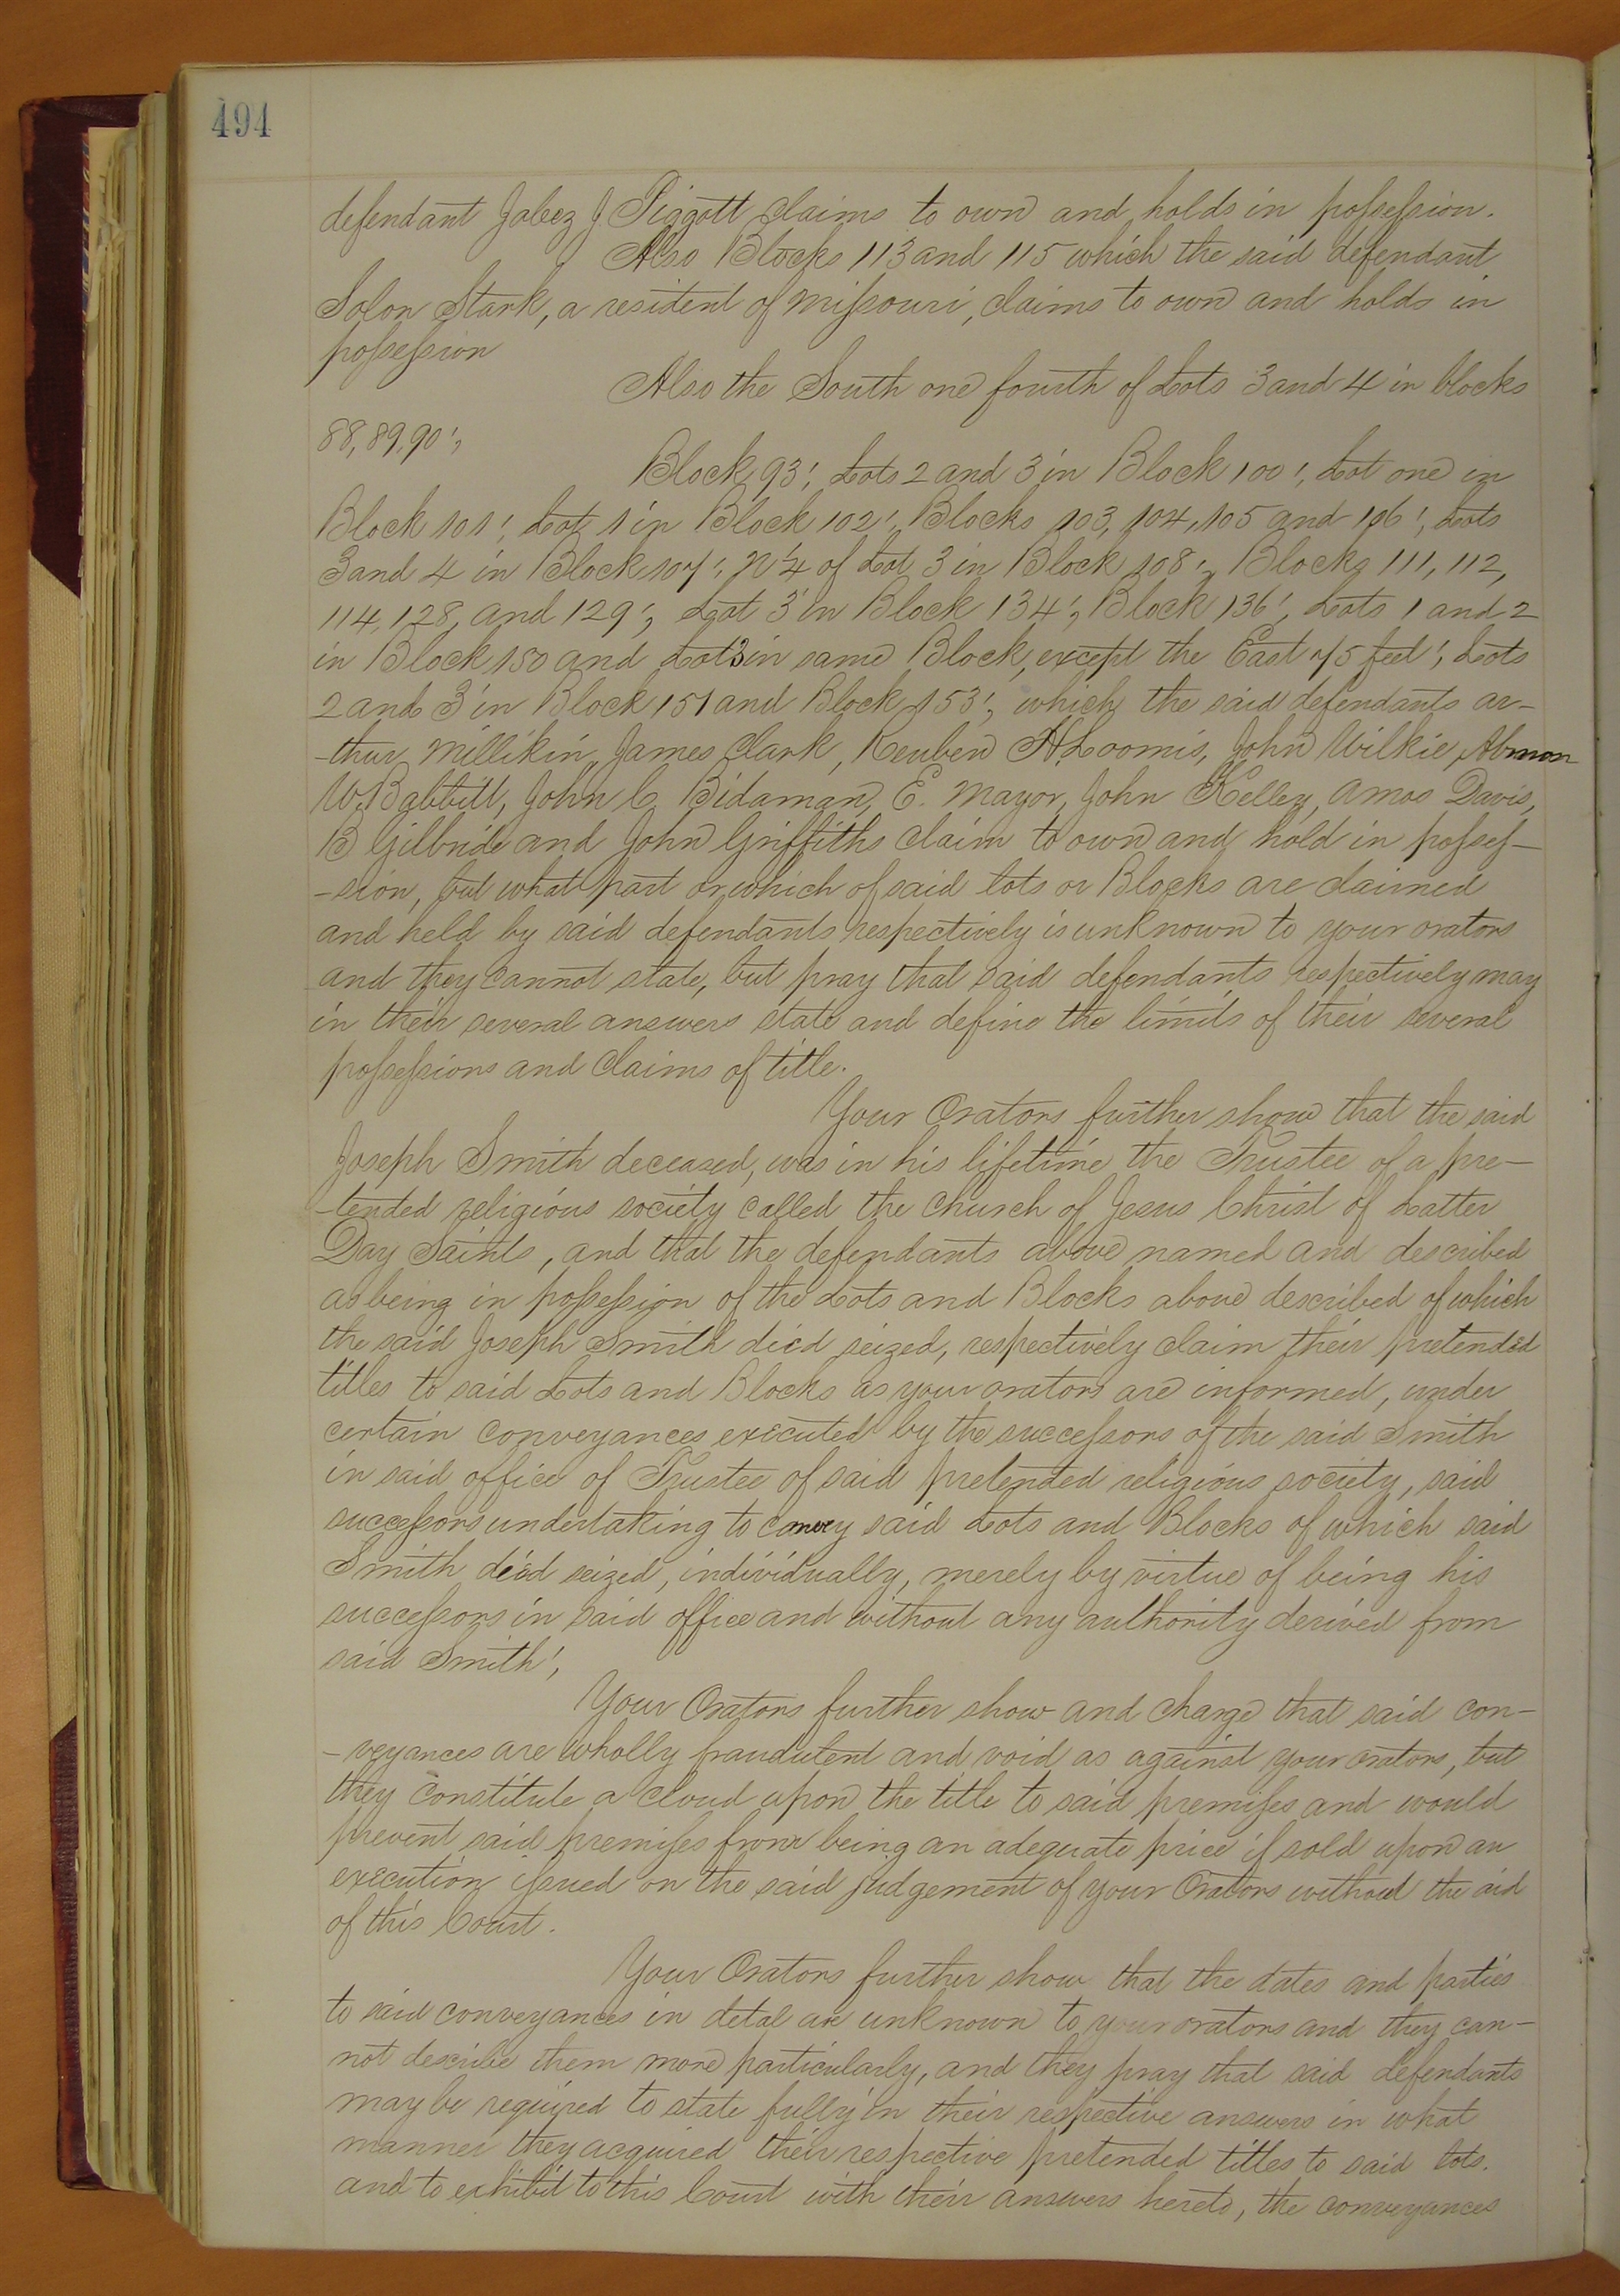 494
defendant Jabez J Piggott claims to own and holds in possession.
Also Blocks 113 and 115 which the said defendant
Solon Stark, a resident of Missouri, claims to own and holds in
possession
Also the South one fourth of Lots 3 and 4 in blocks
88, 89, 90;
Block 93; Lots 2 and 3 in Block 100; Lot one in
Block 101; Lot 1 in Block 102; Blocks 103, 104, 105 and 106; Lots
3 and 4 in Block 107; N ¼ of Lot 3 in Block 108; Blocks 111, 112,
114, 128, and 129; Lot 3 in Block 134; Block 136; Lots 1 and 2
in Block 150 and Lot 3 in same Block, except the East 75 feet; Lots
2 and 3 in Block 151 and Block 153; which the said defendants ar-
-thur Millikin, James Clark, Reuben H Loomis, John Wilkie, Almon
W. Babbitt, John C Bidaman, E. Mayor, John Kelley, Amos Davis,
B Gilbride and John Griffiths claim to own and hold in posses-
-sion, but what part or which of said lots or Blocks are claimed
and held by said defendants respectively is unknown to your orators
and they cannot state, but pray that said defendants respectively may
in their several answers state and define the limits of their several
possessions and claims of title.
Your Orators further show that the said
Joseph Smith deceased, was in his lifetime the Trustee of a pre-
-tended religious society called the Church of Jesus Christ of Latter
Day Saints, and that the defendants above named and described
as being in possession of the Lots and Blocks above described of which
the said Joseph Smith died seized, respectively claim their pretended
titles to said Lots and Blocks as your orators are informed, under
certain conveyances executed by the successors of the said Smith
in said office of Trustee of said pretended religious society, said
successors undertaking to convey said Lots and Blocks of which said
Smith died seized, individually, merely by virtue of being his
successors in said office and without any authority derived from
said Smith;
Your Orators further show and charge that said con-
-veyances are wholly fraudulent and void as against your orators, but
they constitute a cloud upon the title to said premises and would
prevent said premises from being an adequate price if sold upon an
execution issued on the said judgement of your Orators without the aid
of this Court.
Your Orators further show that the dates and parties
to said conveyances in detal are unknown to your orators and they can-
not describe them more particularly, and they pray that said defendants
may be required to state fully in their respective answers in what
manner they acquired their respective pretended titles to said lots.
and to exhibit to this Court with their answers hereto, the conveyances